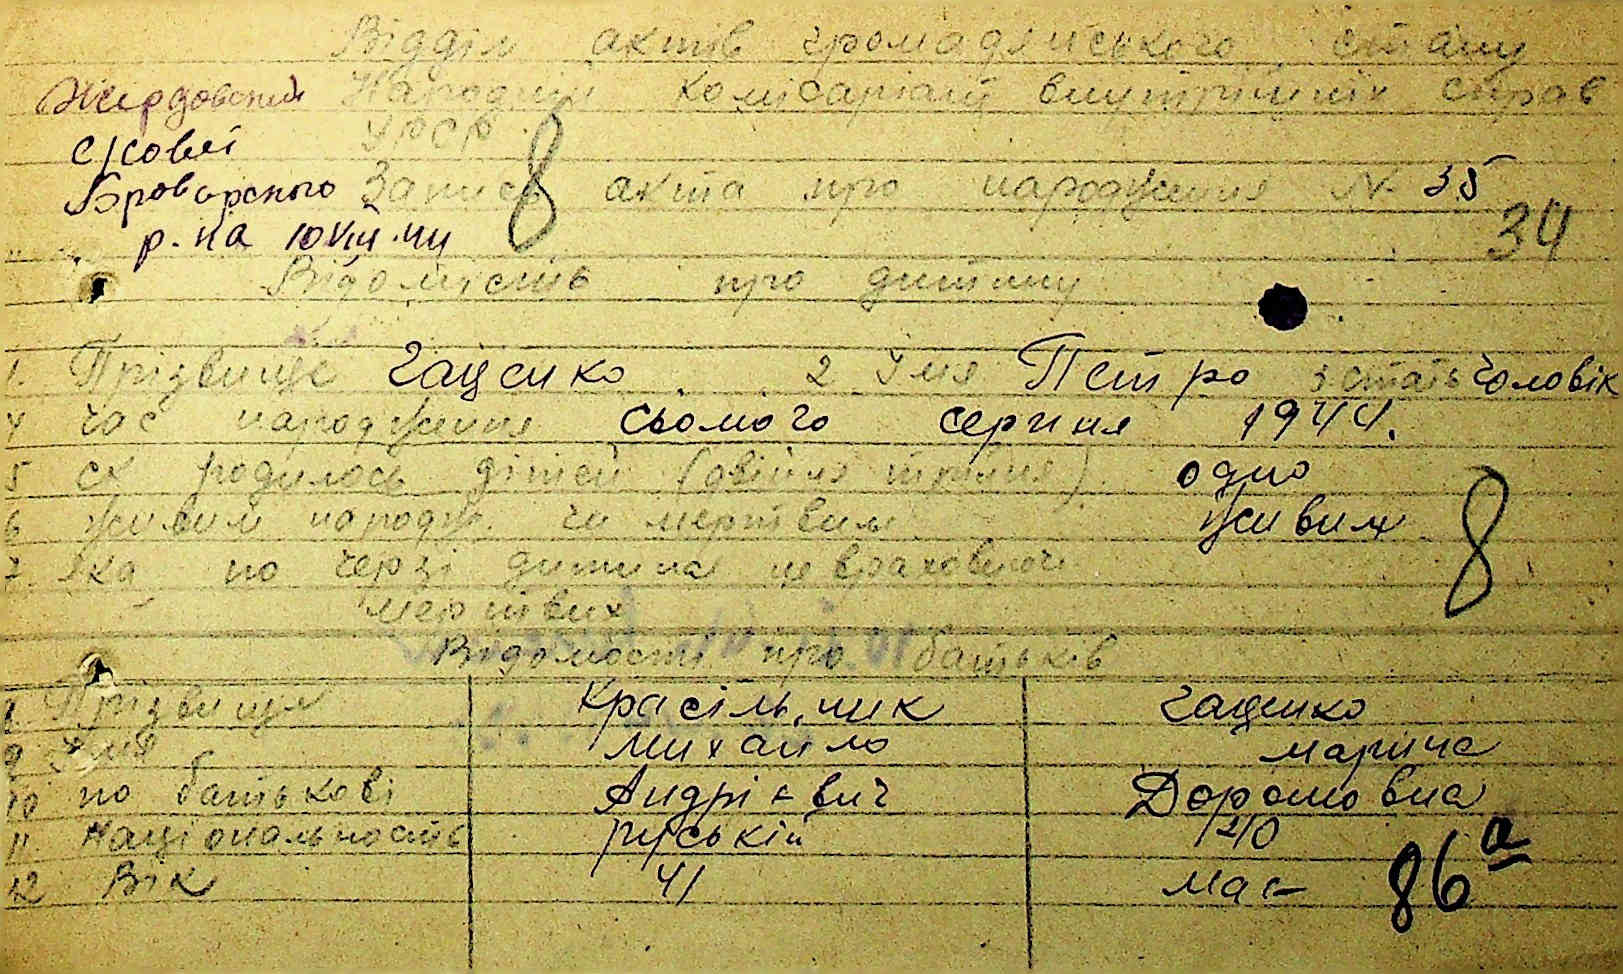 Відділ актів громадянського стану
Жердовський Народнім комісаріату внутрішніх справ
с/совєт УРСР
Броварского Запись акта про народження № 35
р-на 34
8
Відомість про дитину
1. Прізвище Гаценко 2 Імя Петро 3 стать Чоловік
4 час народження сьомого серпня 1944.
5 ск родилось дітей (двійня трийня) одно
6 живим народж. чи мертвим живим
8
7. яка по черзі дитина не враховуючи
мертвих
Відомості про батьків
8 Прізвище Красільник Гаценко
9 Імя Михайло Марича
10 по батькові Андрієвич Дорошовна
11. Національность руській 20
12 Вік 41 має
86а